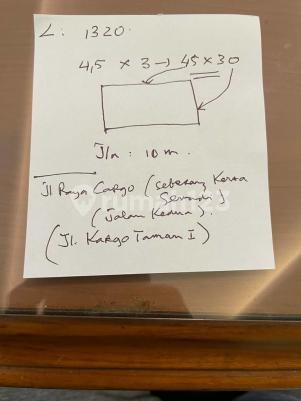 L: 1320.
4,5 x 3 → 45 x 30
Jln : 10 m.
Jl Raya Cargo (seberang Kerta
(Jalan Kedua).
(Jl. Kargo Taman I)
rumah123